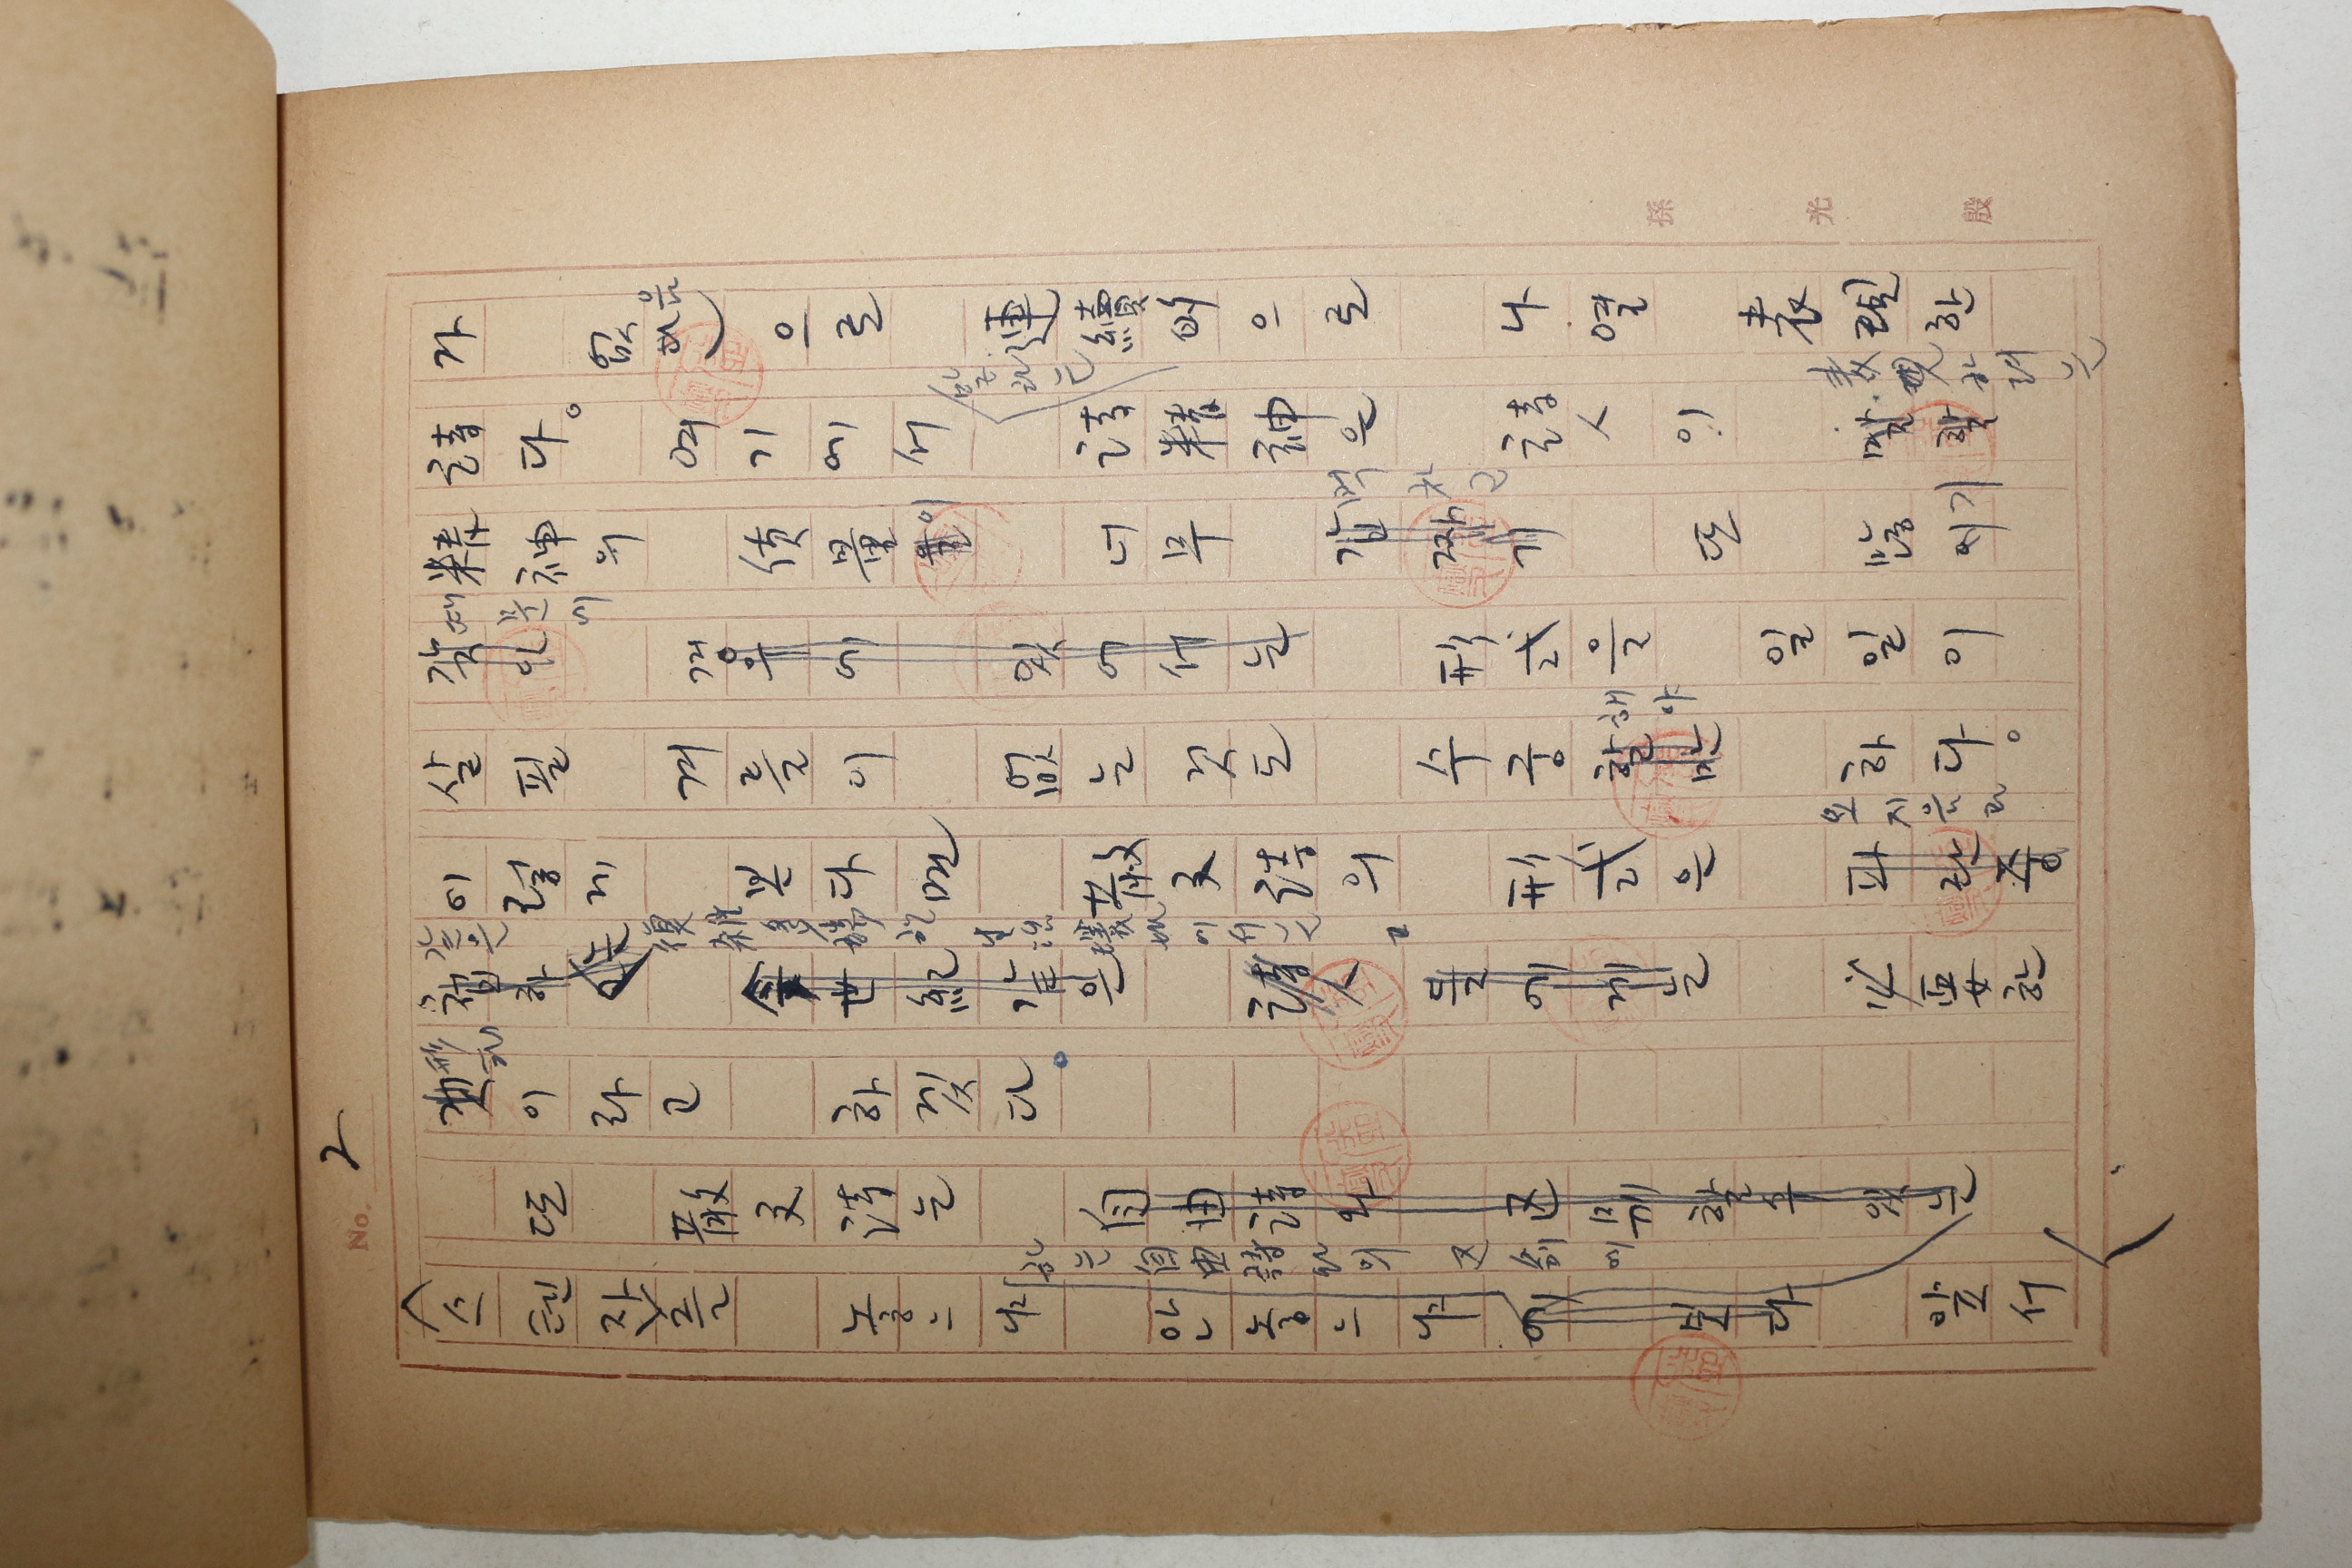 No. 2
가 없(하)음으로 連續的으로 나열 表現한
말과는
詩다。 여기에서 詩精神은 詩人이 말할
表現하려는
精神의 質量이 너무 벅차고 또 많기
때문에
경우에 있어서는 形式을 일일이
살필 겨를이 없는 것도 수궁할만 하다。
해야
이렇게 본다면 散文詩의 形式은 파란중
요지음과
같은 復雜多端한 生活環境에서는
世紀 같은 詩人들에게는 必要한
形式
이라고 하겠다。
또 散文詩는 自由詩와 区別할 수 있는
하는 自由詩와의 区別에
스텐자를 놓느냐 안 놓느냐에 보다 앞서
孫光殷